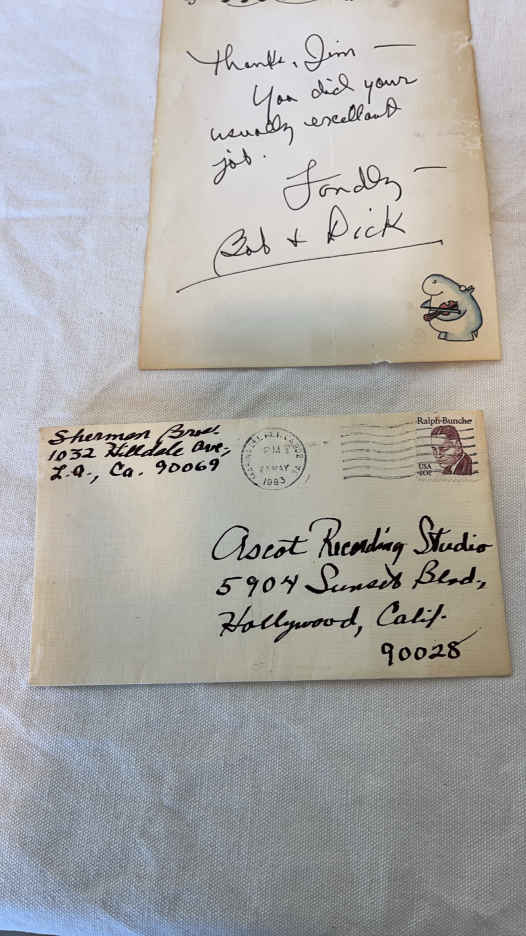 Thanks, Jim —
You did your
usually excellent
job.
Fondly —
Bob & Dick
Sherman Bros.
1032 Hilldale Ave.,
L.A., Ca. 90069
PM
MAY
1983
Ralph Bunche
USA
20c
Ascot Recording Studio
5904 Sunset Blvd,
Hollywood, Calif.
90028